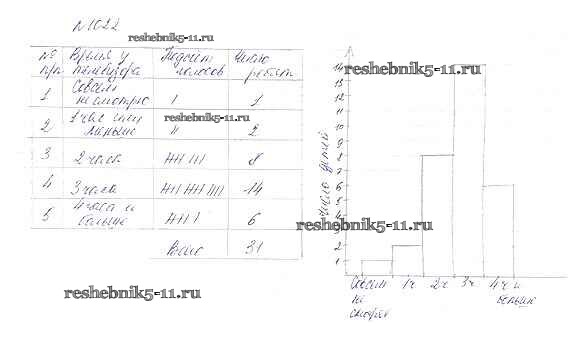 N1022
reshebnik5-11.ru
№ Время у Подсчёт Число
п/п телевизора голосов ребят
1 Совсем
не смотрю I 1
2 1 час или
меньше II 2
reshebnik5-11.ru
3 2 часа 8
4 3 часа 14
5 4 часа и
больше 6
Всего 31
reshebnik5-11.ru
Число детей
14
13
12
11
10
9
8
7
6
5
4
3
2
1
reshebnik5-11.ru
reshebnik5-11.ru
Совсем 1ч 2ч 3ч 4ч и
не больше
смотрел